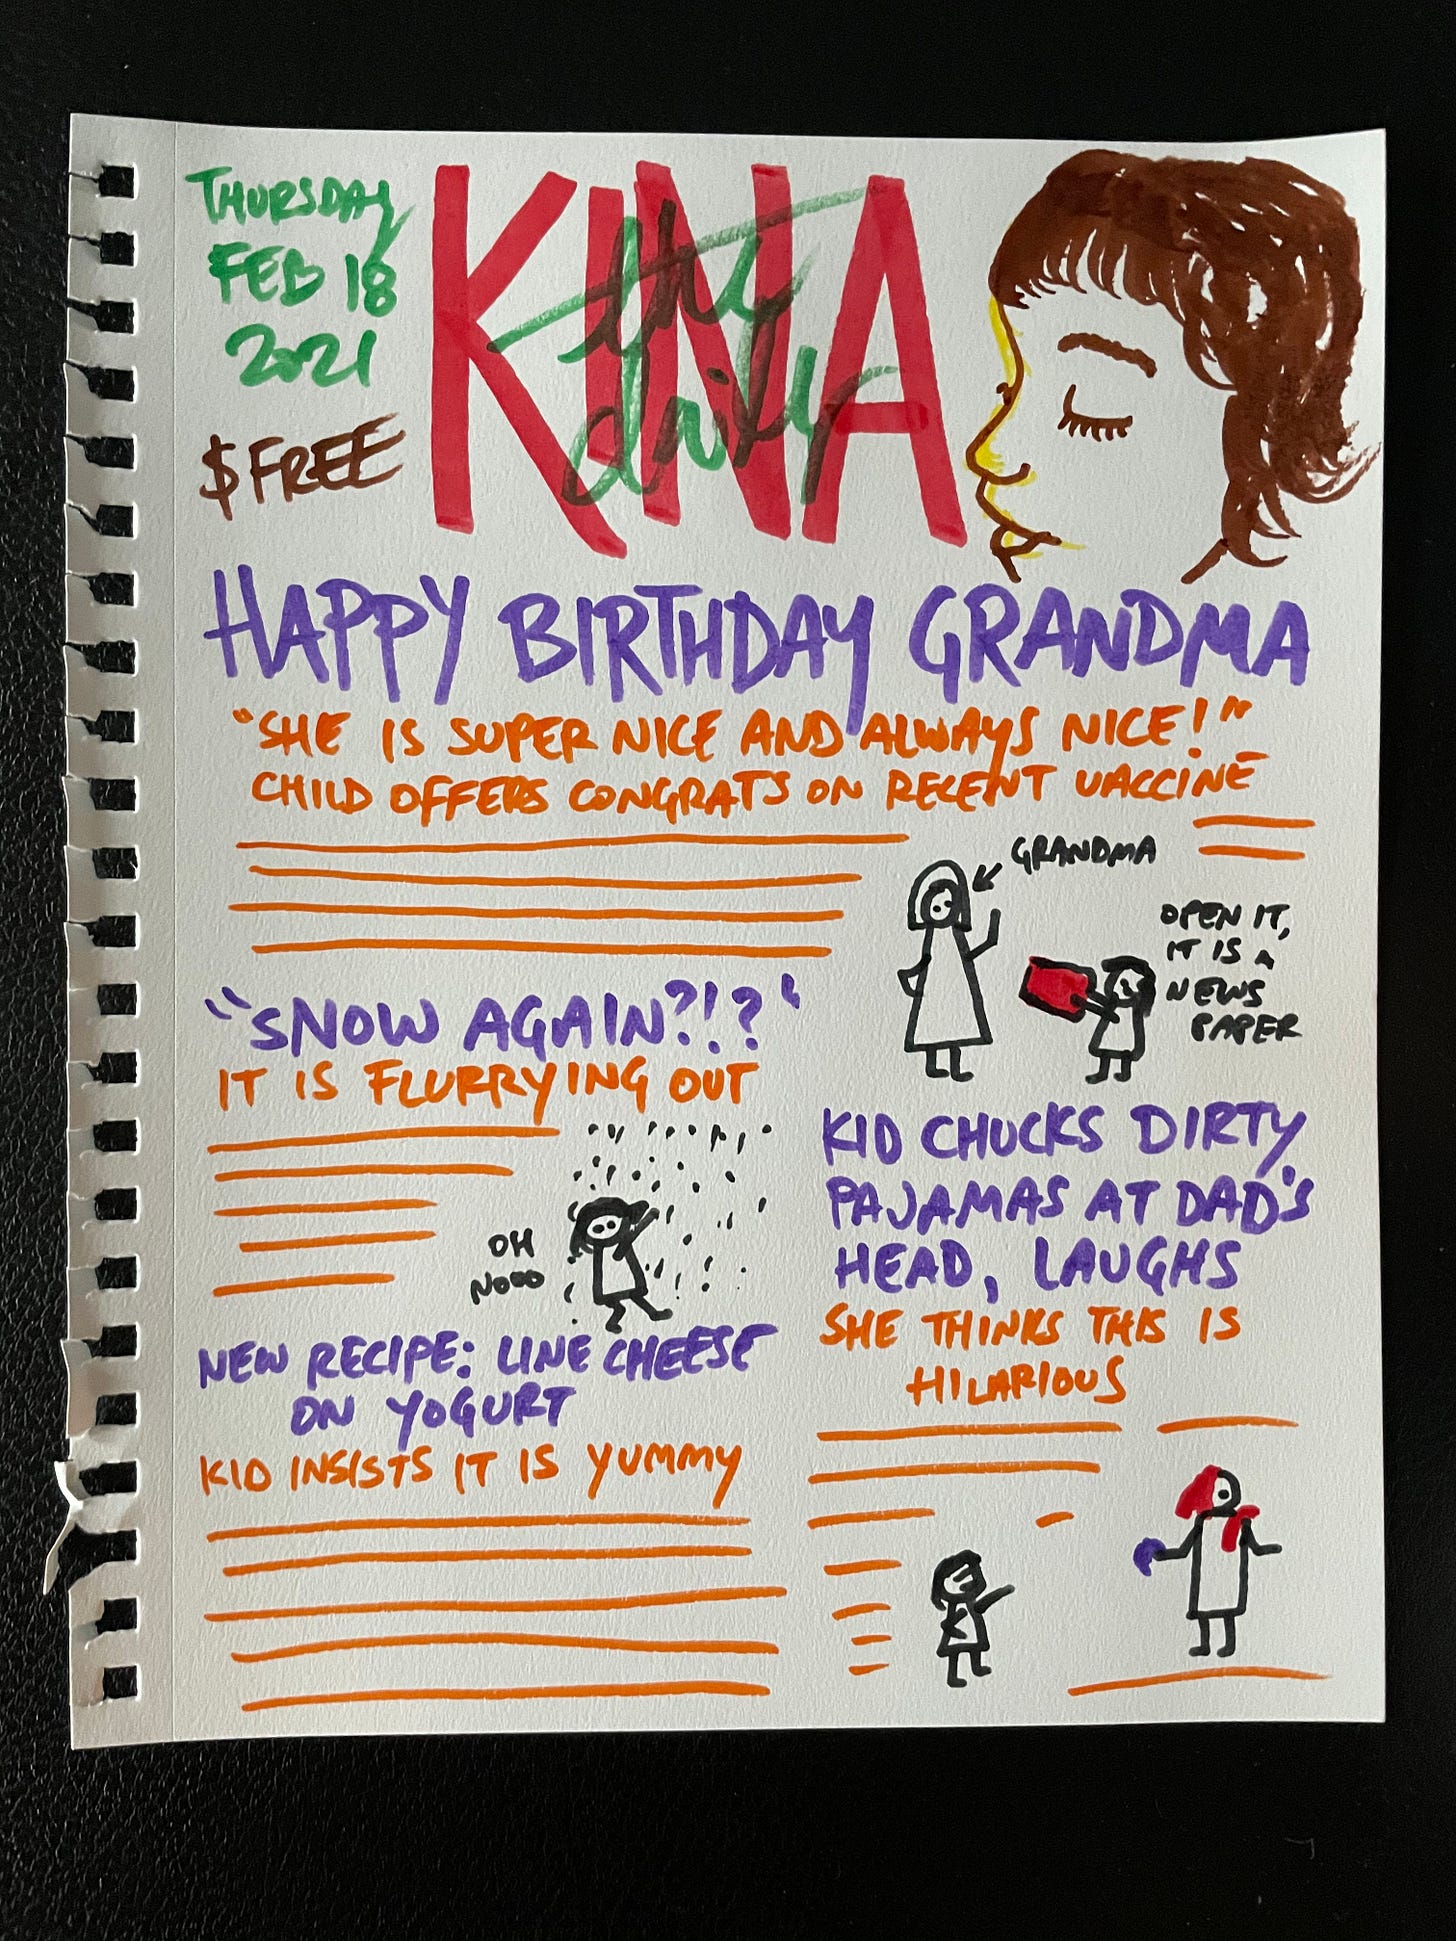 THURSDAY
FEB 18
2021
$FREE
KINA
the
daily
HAPPY BIRTHDAY GRANDMA
"SHE IS SUPER NICE AND ALWAYS NICE!"
CHILD OFFERS CONGRATS ON RECENT VACCINE
GRANDMA
OPEN IT,
IT IS A
NEWS
PAPER
"SNOW AGAIN?!?"
IT IS FLURRYING OUT
OH
NOOO
KID CHUCKS DIRTY
PAJAMAS AT DAD'S
HEAD, LAUGHS
SHE THINKS THIS IS
HILARIOUS
NEW RECIPE: LINE CHEESE
ON YOGURT
KID INSISTS IT IS YUMMY